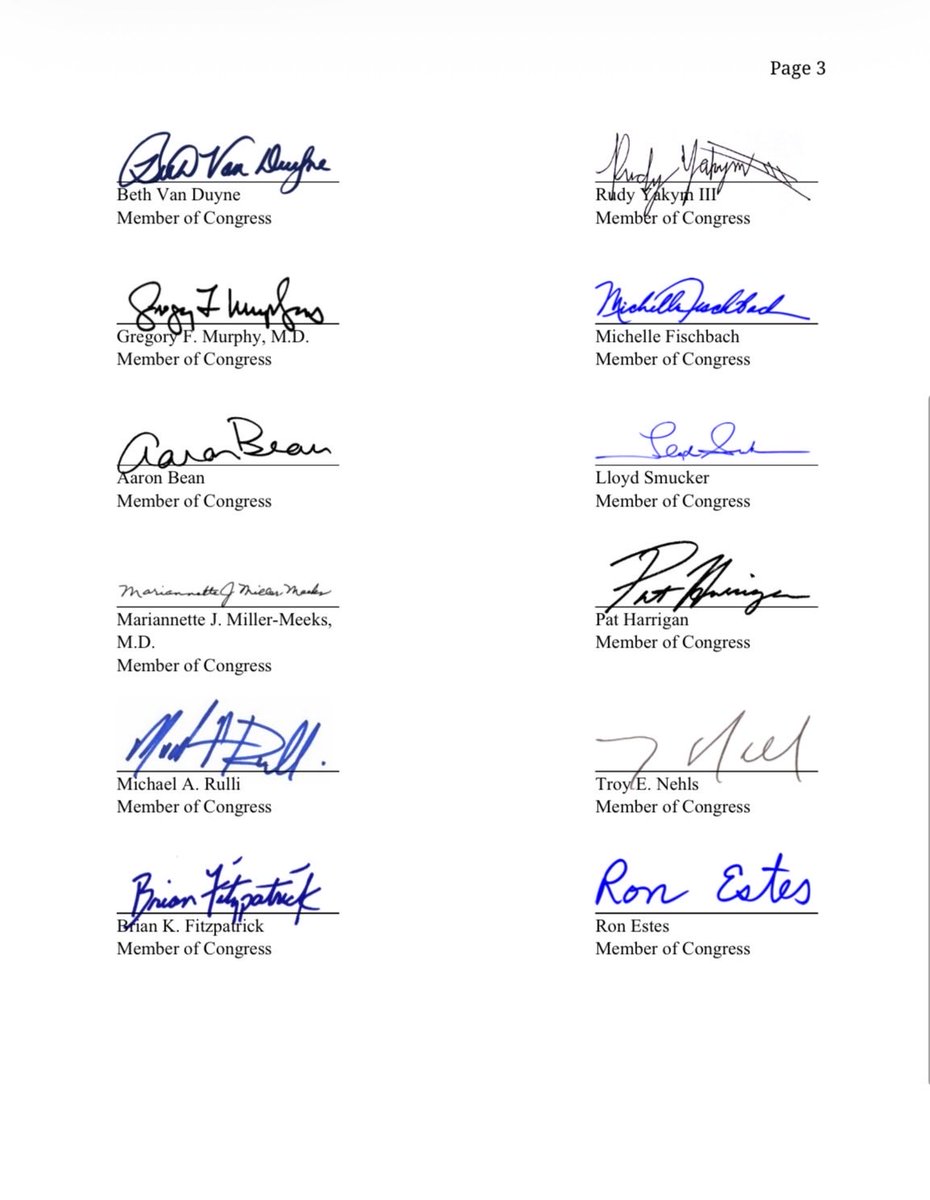 Page 3
Beth Van Duyne
Beth Van Duyne
Member of Congress
Rudy Yakym III
Rudy Yakym III
Member of Congress
Gregory F. Murphy
Gregory F. Murphy, M.D.
Member of Congress
Michelle Fischbach
Michelle Fischbach
Member of Congress
Aaron Bean
Aaron Bean
Member of Congress
Lloyd Smucker
Member of Congress
Mariannette J. Miller-Meeks
Mariannette J. Miller-Meeks,
M.D.
Member of Congress
Pat Harrigan
Pat Harrigan
Member of Congress
Michael A. Rulli
Member of Congress
Troy E. Nehls
Member of Congress
Brian Fitzpatrick
Brian K. Fitzpatrick
Member of Congress
Ron Estes
Ron Estes
Member of Congress